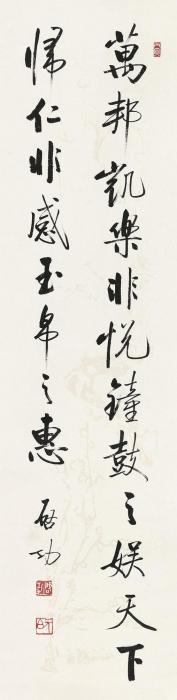 萬邦凱樂非悦鐘鼓之娱天下
歸仁非感玉帛之惠
啟功